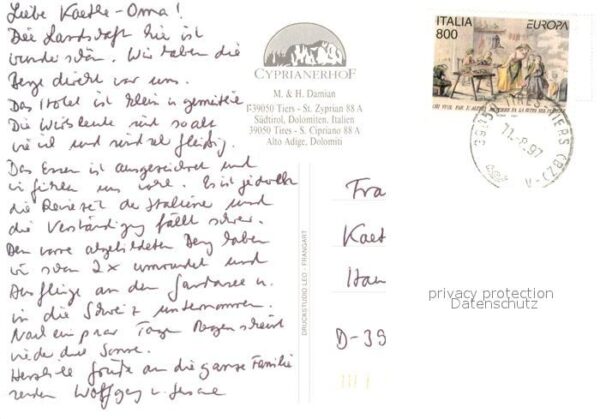 Liebe Kaethe-Oma!
Die Landschaft hier ist
wunderschön. Wir haben die
Berge direkt vor uns.
Das Hotel ist klein u. gemütlich
Die Wirtsleute sind so alt
wie wir und sind sehr fleißig.
Das Essen ist ausgezeichnet und
wir fühlen uns wohl. Es ist jedoch
die Reisezeit der Italiener und
die Verständigung fällt schwer.
Den vorne abgebildeten Berg haben
wir schon 2x umrundet und
Ausflüge an den Gardasee u.
in die Schweiz unternommen.
Nach ein paar Tagen Regen scheint
wieder die Sonne.
Herzliche Grüße an die ganze Familie
senden Wolfgang u.
CYPRIANERHOF
M. & H. Damian
I-39050 Tiers - St. Zyprian 88 A
Südtirol, Dolomiten, Italien
39050 Tires - S. Cipriano 88 A
Alto Adige, Dolomiti
DRUCKSTUDIO LEO - FRANGART
ITALIA
800
EUROPA
39050 TIRES TIERS (BZ)
11.-8.97
Fra
Kaet
D-39
privacy protection
Datenschutz